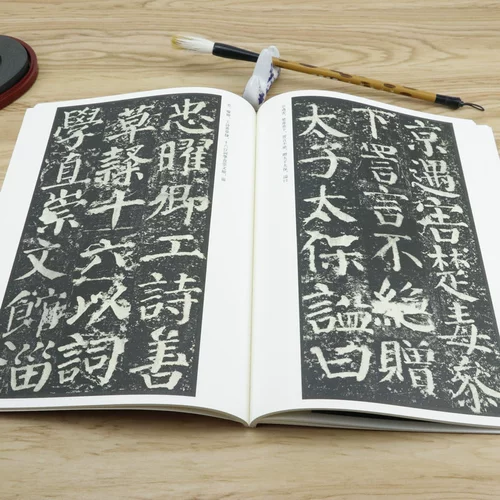 京遇害楚毒參
下詈言不絕贈
太子太保謚曰
忠曜卿工詩善
草隸十六以詞
學直崇文館淄